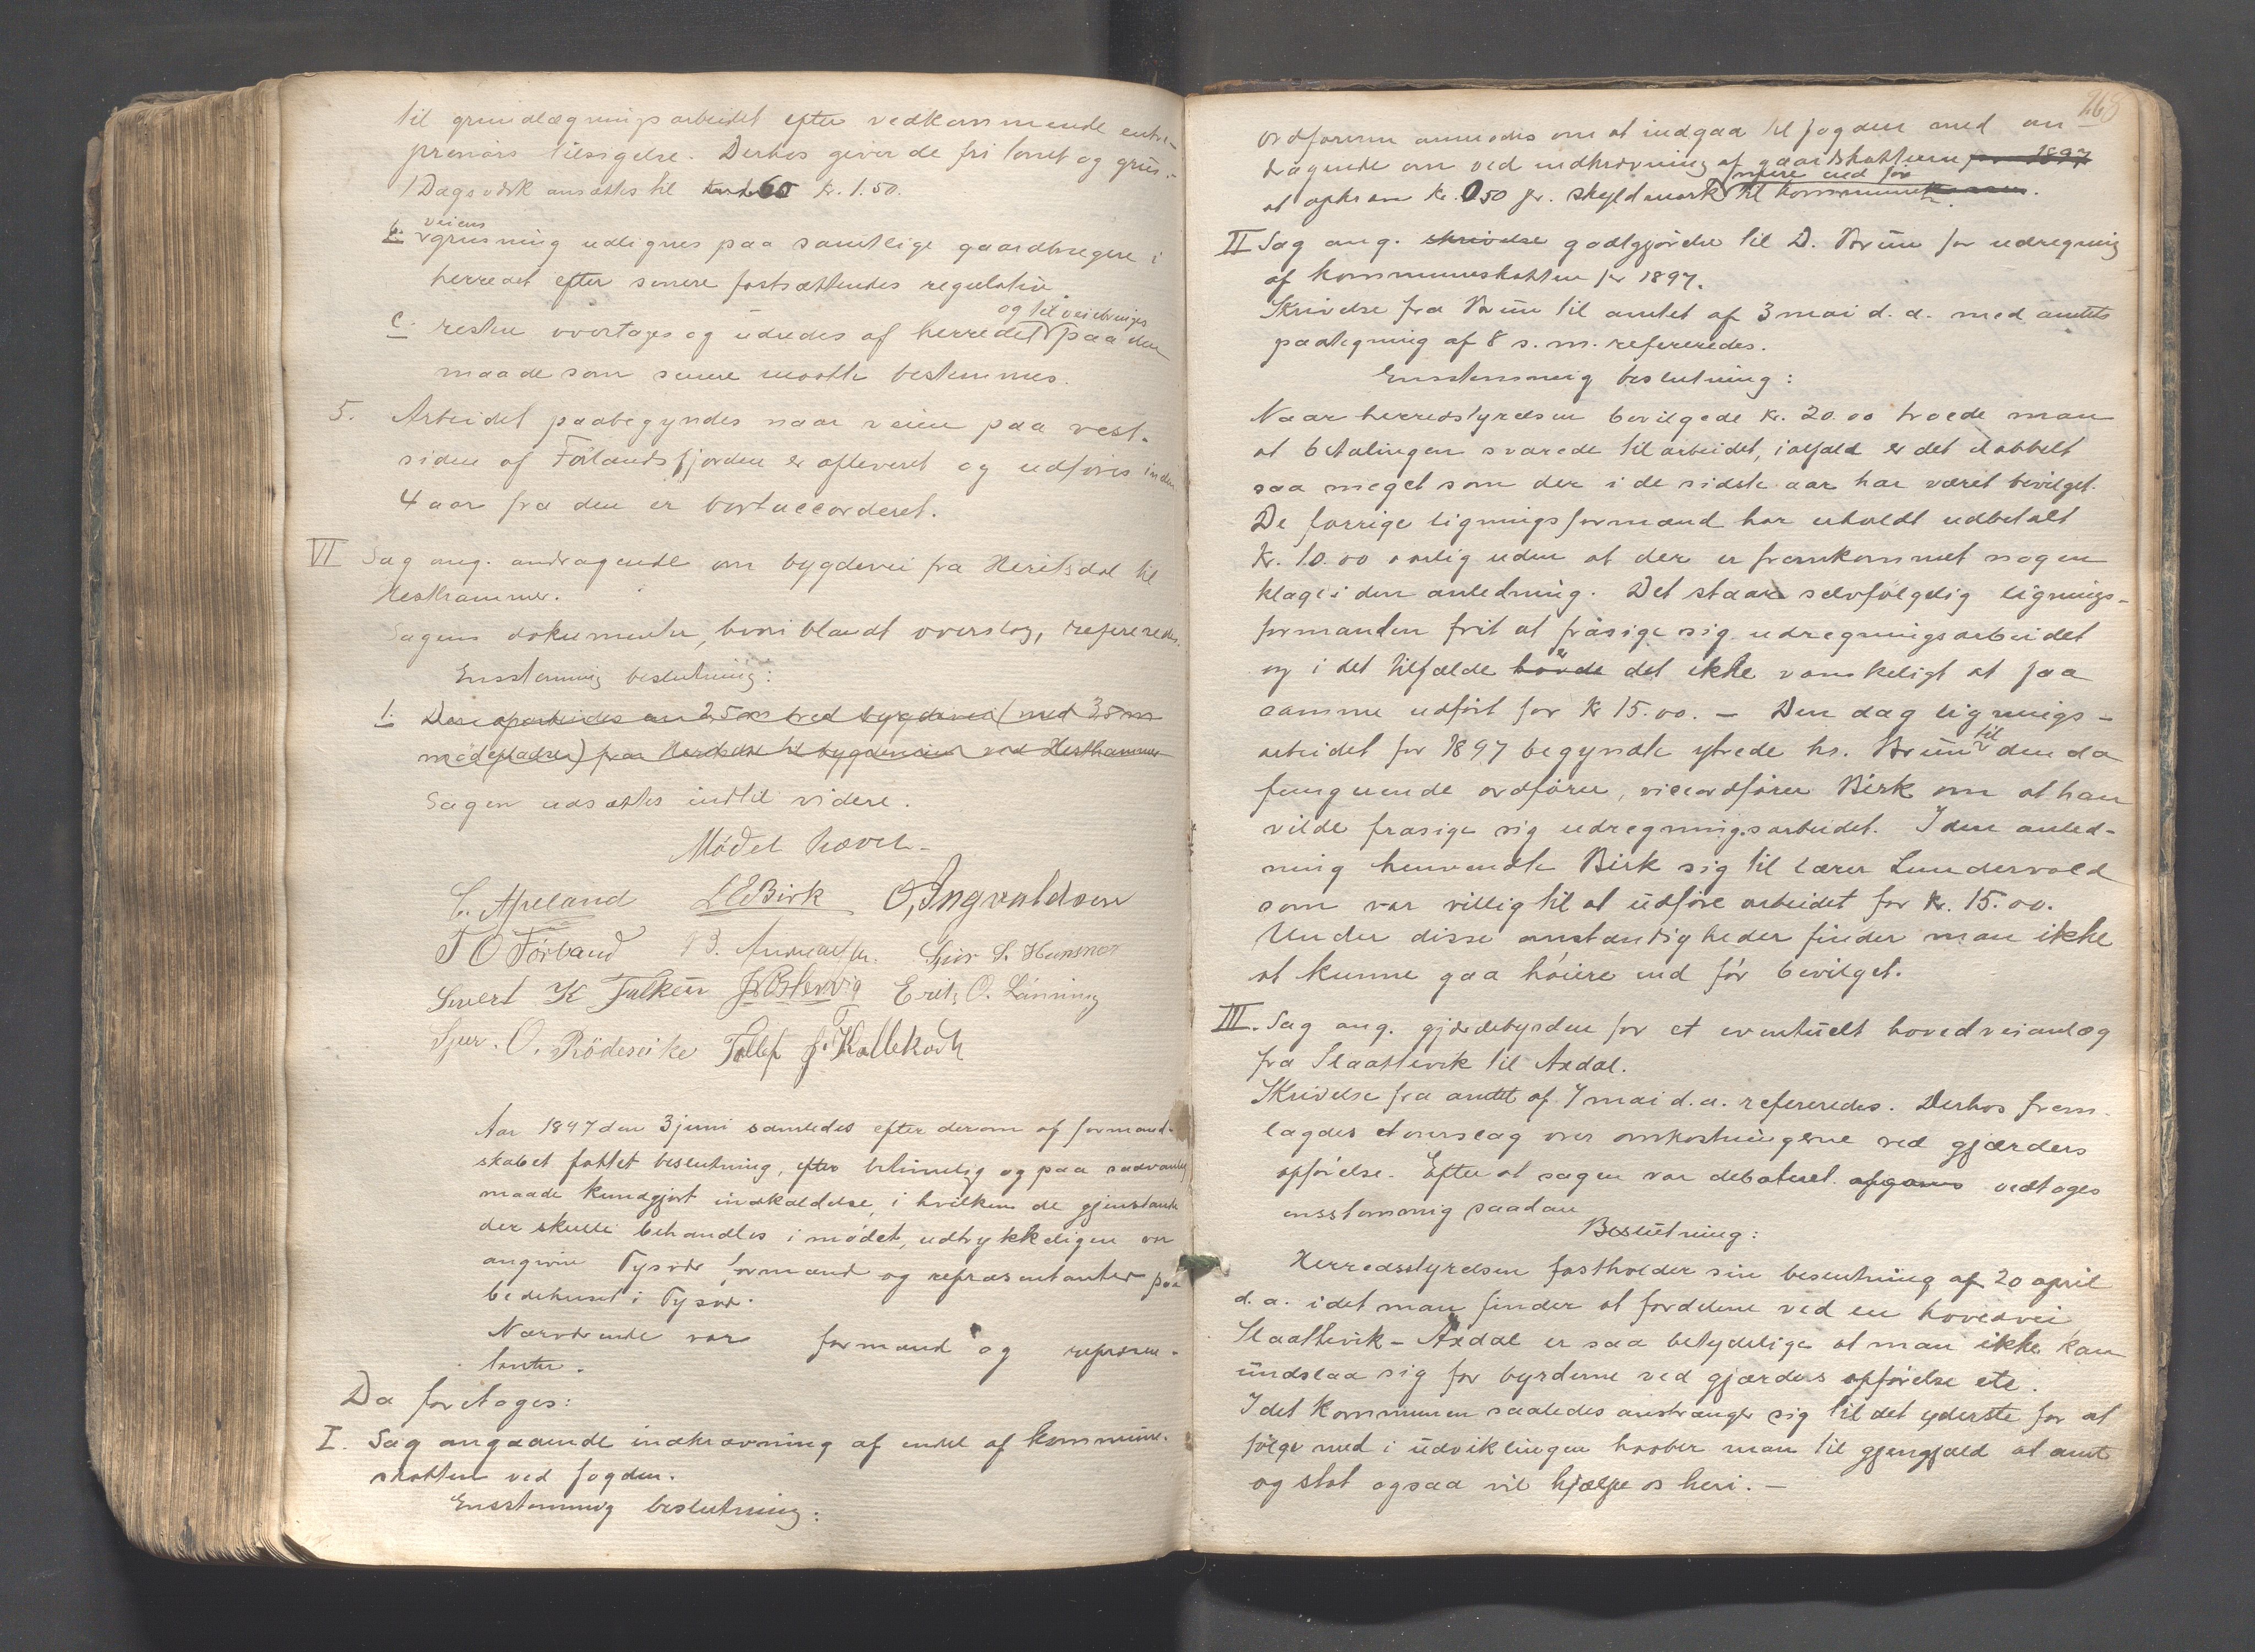 til grundlægningsarbeidet efter vedkommende entre-
prenørs tilsigelse. Derhos giver de fri tomt og grus.-
1 Dagsværk ansættes til kr. 1.50.
b. veiens grusning udlignes paa samtlige gaardbrugere i
herredet efter senere fastsættendes regulativ.
og til veiebringes
c. resten overtages og udredes af herredet paa den
maade som senere maatte bestemmes.
5. Arbeidet paabegyndes naar veien paa vest-
siden af Førlandsfjorden er afleveret og udføres inden
4 aar fra den er bortaccorderet.
VI Sag ang. andragende om bygdevei fra Heritsdal til
Hesthammer.
Sagens dokumenter, hvoriblandt overslag, refereredes.
Enstemmig beslutning:
1. Der oparbeides en 2,5 m bred bygdevei (med 3,5 m
mødepladser) fra til bygdeveien ved Hesthammer
Sagen udsættes indtil videre.
Mødet hævet-
C. Apeland LEBirk O, Ingvaldsen
T O Førland B. Andreassen. Sjur S. Hunsnes
Sivert K Falkeim Erik O. Lønning
Sjur. O. Rødeseike Tollef J. Kallekodt
Aar 1897 den 3 juni samledes efter derom af formand-
skabet fattet beslutning, efter betimelig og paa sædvanlig
maade kundgjort indkaldelse, i hvilken de gjenstande
der skulle behandles i mødet, udtrykkeligen var
angivne Tysvær formænd og repræsentanter paa
bedehuset i Tysvær.
Nærværende var formænd og repræsen-
tanter.
Da foretoges:
I. Sag angaaende indkrævning af endel af kommune-
skatten ved fogden.
Enstemmig beslutning:
268
Ordføreren anmodes om at indgaa til fogden med an-
dragende om ved indkrævning af gaardskatten for 1897
mere end før
at opkræve kr. 0 50 pr. skyldmark til kommunen.
II Sag ang. skrivelse godtgjørelse til D. Brün for udregning
af kommuneskatten for 1897.
Skrivelse fra Brün til amtet af 3 mai d. a. med amtets
paategning af 8 s. m. refereredes.
Enstemmig beslutning:
Naar herredsstyrelsen bevilgede kr. 20.00 troede man
at betalingen svarede til arbeidet, ialfald er det dobbelt
saa meget som der i de sidste aar har været bevilget.
De forrige ligningsformænd har erholdt udbetalt
kr. 10.00 aarlig uden at der er fremkommet nogen
klage i den anledning. Det staar selvfølgelig lignings-
formanden frit at frasige sig udregningsarbeidet
er
og i det tilfælde havde det ikke vanskeligt at faa
samme udført for kr 15.00. - Den dag lignings-
arbeidet for 1897 begyndte ytrede hr. Brün til den da
fungerende ordfører, viceordfører Birk om at han
vilde frasige sig udregningsarbeidet. I den anled-
ning henvendte Birk sig til lærer Lundervold
som var villig til at udføre arbeidet for kr. 15.00.
Under disse omstændigheder finder man ikke
at kunne gaa høiere end før bevilget.
III. Sag ang. gjærdebyrden for et eventuelt hovedveianlæg
fra Slaattevik til Axdal.
Skrivelse fra amtet af 7 mai d. a. refereredes. Derhos frem-
lagdes et overslag over omkostningerne ved gjærders
opførelse. Efter at sagen var debateret afgaves vedtoges
enstemmig saadan
Beslutning:
Herredsstyrelsen fastholder sin beslutning af 20 april
d. a. idet man finder at fordelene ved en hovedvei
Slaattevik - Axdal er saa betydelige at man ikke kan
undslaa sig for byrderne ved gjærders opførelse etc.
Idet kommunen saaledes anstrænger sig til det yderste for at
følge med i udviklingen haaber man til gjengjæld at amt
og stat ogsaa vil hjælpe os heri. -